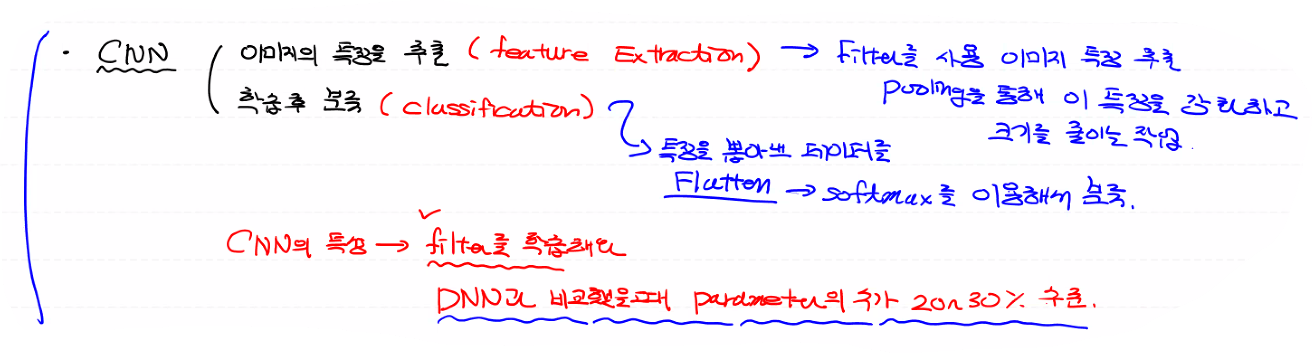 · CNN ( 이미지의 특징을 추출 (feature Extraction) → Filter를 사용 이미지 특징 추출
pooling을 통해 이 특징을 강화하고
크기를 줄이는 작업.
학습후 분류 (classification)
특징을 뽑아낸 데이터를
Flatten → softmax를 이용해서 분류.
CNN의 특징 → filter를 학습해요
DNN과 비교했을때 parameter의 수가 20~30% 수준.